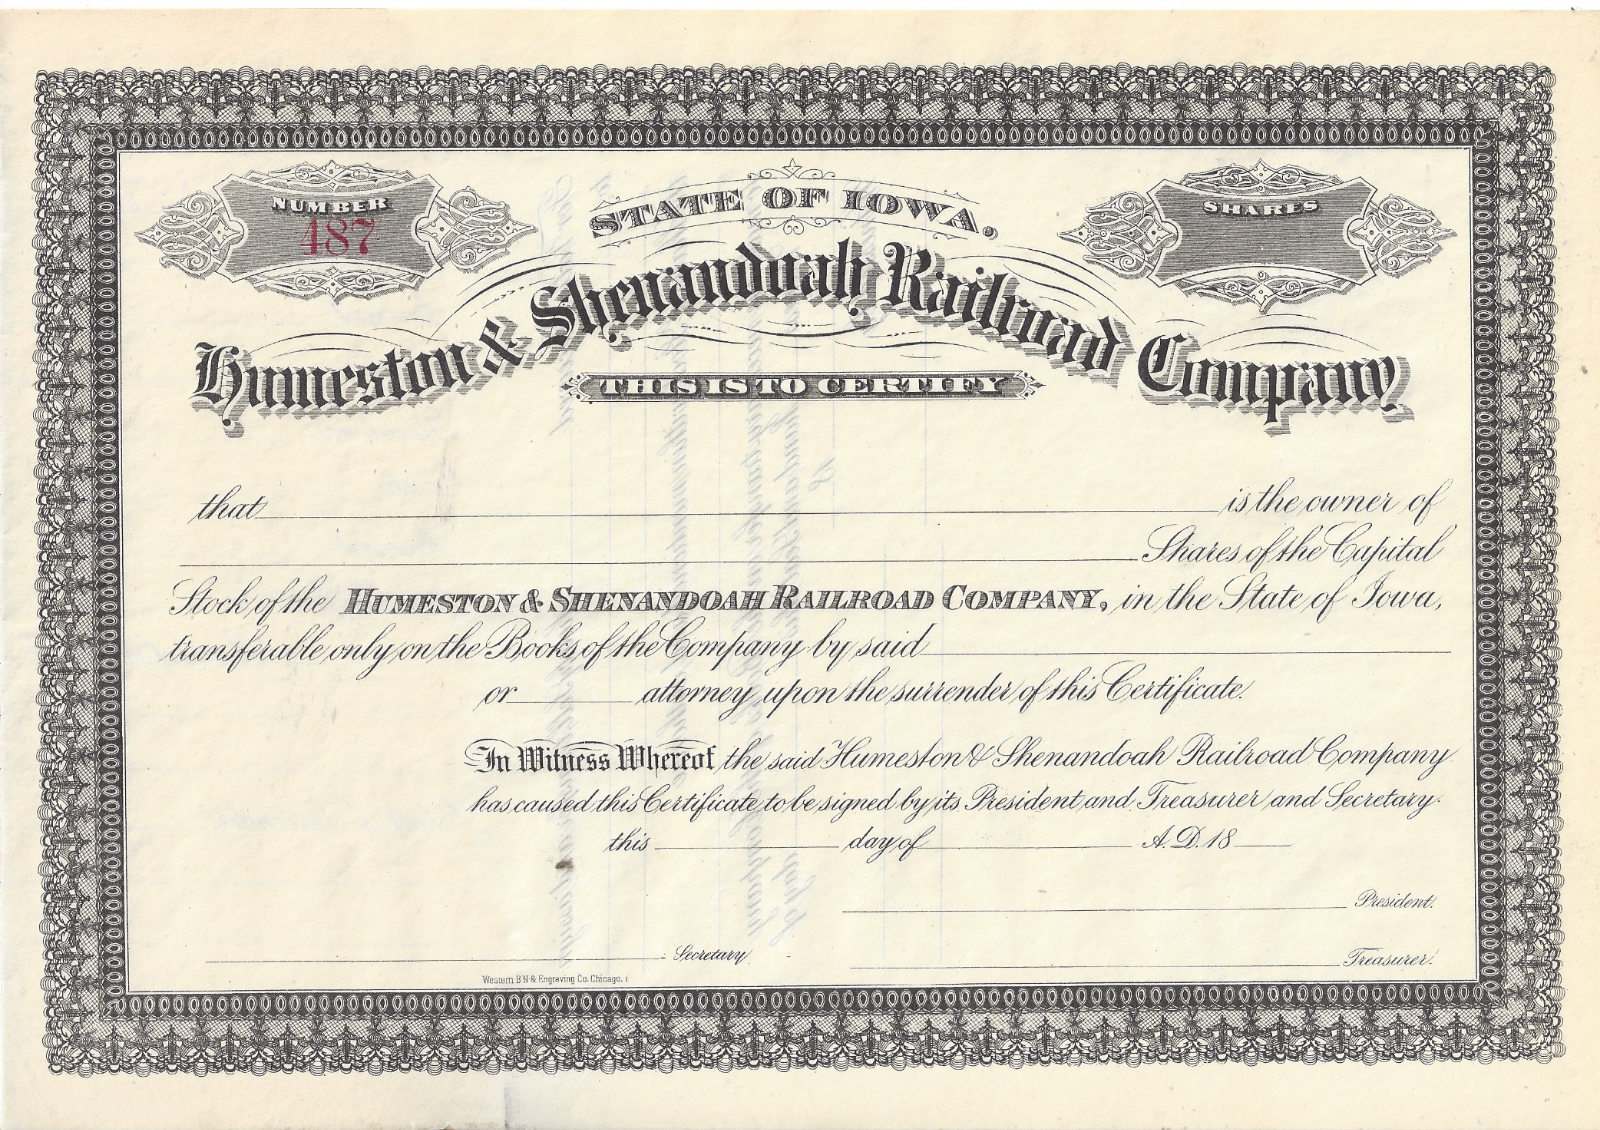 NUMBER
487
STATE OF IOWA,
SHARES
Humeston & Shenandoah Railroad Company
THIS IS TO CERTIFY
that is the owner of
Shares of the Capital
Stock of the HUMESTON & SHENANDOAH RAILROAD COMPANY, in the State of Iowa,
transferable only on the Books of the Company by said
or attorney upon the surrender of this Certificate.
In Witness Whereof the said Humeston & Shenandoah Railroad Company
has caused this Certificate to be signed by its President and Treasurer and Secretary.
this day of A.D. 18
President.
Secretary.
Treasurer.
Western B N & Engraving Co. Chicago.